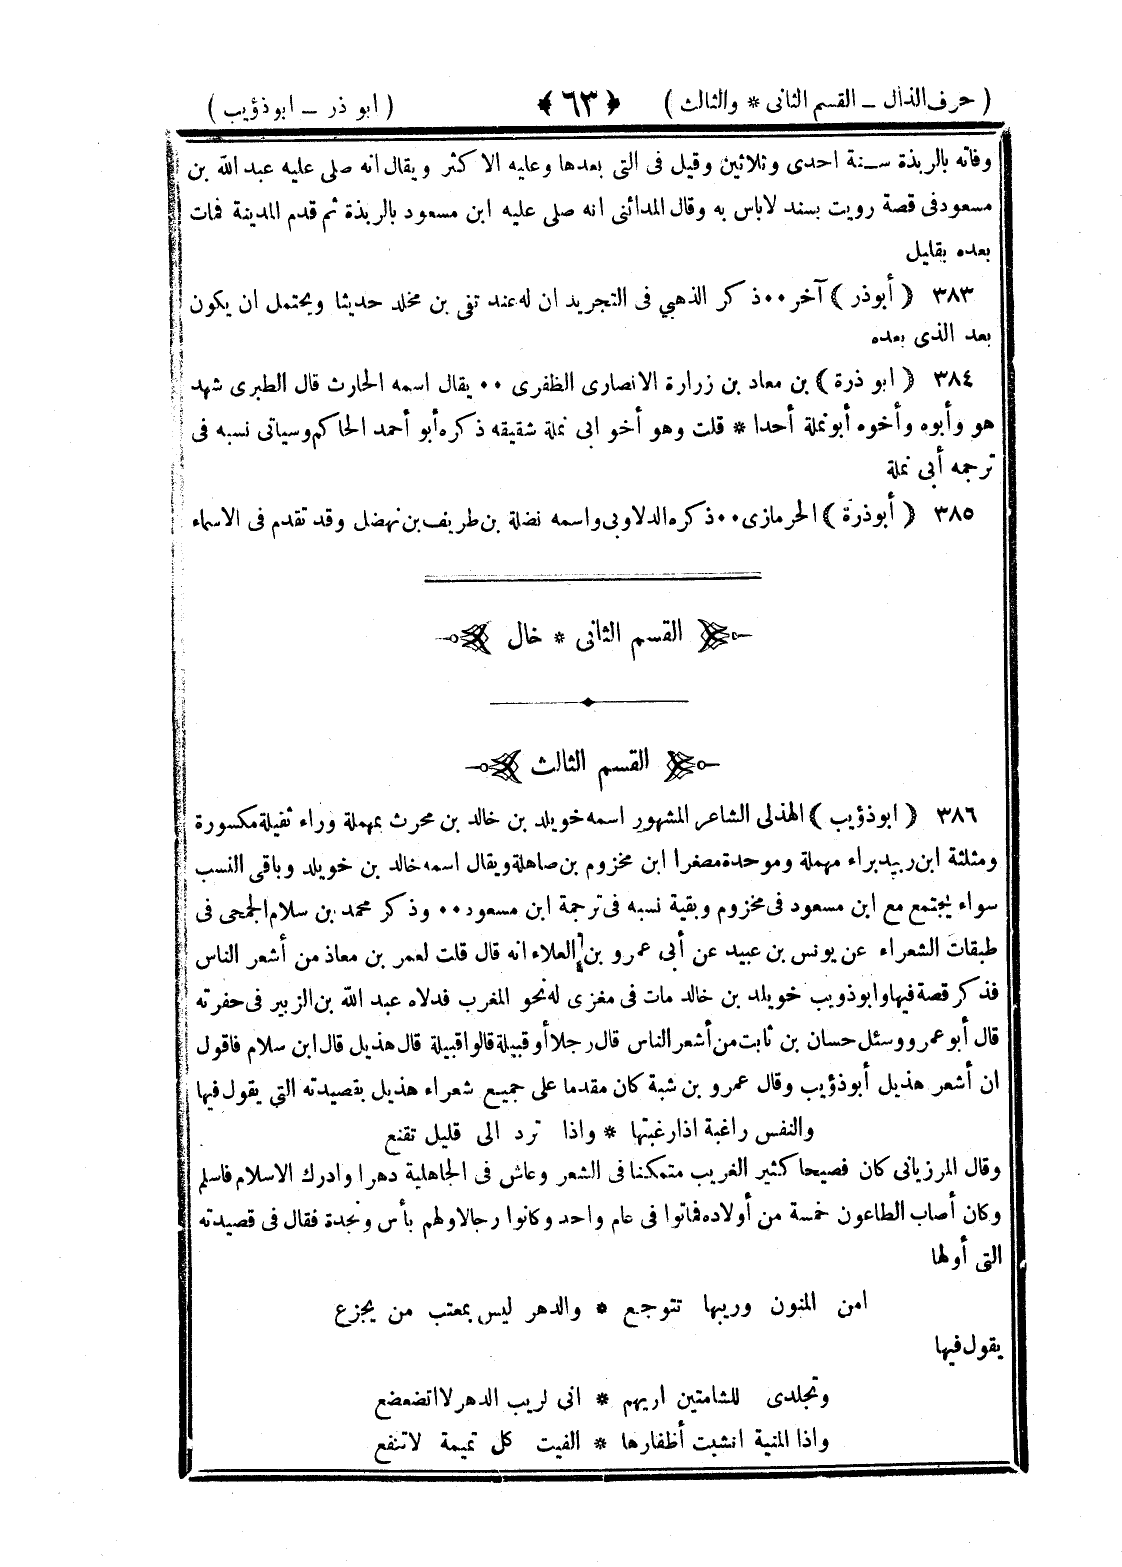 ( حرف الذال ـ القسم الثانى * والثالث )   ﴿ ٦٣ ﴾   ( ابو ذر ـ ابوذؤيب )
وفاته بالربذة سـنة احدى وثلاثين وقيل فى التى بعدها وعليه الاكثر ويقال انه صلى عليه عبد الله بن
مسعود فى قصة رويت بسند لاباس به وقال المدائنى انه صلى عليه ابن مسعود بالربذة ثم قدم المدينة فمات
بعده بقليل
٣٨٣ ﴿ أبوذر ﴾ آخر ٠٠ ذكر الذهبي فى التجريد ان له عند تقى بن مخلد حديثا ويحتمل ان يكون
بعد الذى بعده
٣٨٤ ﴿ ابو ذرة ﴾ بن معاد بن زرارة الانصارى الظفرى ٠٠ يقال اسمه الحارث قال الطبرى شهد
هو وأبوه وأخوه أبو نملة أحدا * قلت وهو أخو ابى نملة شقيقه ذكره أبو أحمد الحاكم وسياتى نسبه فى
ترجمه أبى نملة
٣٨٥ ﴿ أبوذرة ﴾ الحرمازى ٠٠ ذكره الدلاوبى واسمه نضلة بن طريف بن نهضل وقد تقدم فى الاسماء
القسم الثانى * خال
القسم الثالث
٣٨٦ ﴿ ابوذؤيب ﴾ الهذلى الشاعر المشهور اسمه خويلد بن خالد بن محرث بمهملة وراء ثقيلة مكسورة
ومثلثة ابن ربيد براء مهملة وموحدة مصغرا ابن مخزوم بن صاهلة ويقال اسمه خالد بن خويلد وباقى النسب
سواء يجتمع مع ابن مسعود فى مخزوم وبقية نسبه فى ترجمة ابن مسعود ٠٠ وذكر محمد بن سلام الجمحى فى
طبقات الشعراء عن يونس بن عبيد عن أبى عمرو بن العلاء انه قال قلت لعمر بن معاذ من أشعر الناس
فذكر قصة فيها وابوذويب خويلد بن خالد مات فى مغزى له نحو المغرب فدلاه عبد الله بن الزبير فى حفرته
قال أبو عمرو وسئل حسان بن ثابت من أشعر الناس قال رجلا أو قبيلة قالوا قبيلة قال هذيل قال ابن سلام فاقول
ان أشعر هذيل أبوذؤيب وقال عمرو بن شبة كان مقدما على جميع شعراء هذيل بقصيدته التي يقول فيها
والنفس راغبة اذا رغبتها * واذا ترد الى قليل تقنع
وقال المرزبانى كان فصيحا كثير الغريب متمكنا فى الشعر وعاش فى الجاهلية دهرا وادرك الاسلام فاسلم
وكان أصاب الطاعون خمسة من أولاده فماتوا فى عام واحد وكانوا رجالا ولهم بأس ونجدة فقال فى قصيدته
التى أولها
امن المنون وريبها تتوجع * والدهر ليس بمعتب من يجزع
يقول فيها
وتجلدى للشامتين اريهم * انى لريب الدهر لا اتضعضع
واذا المنية انشبت أظفارها * الفيت كل تميمة لاتنفع